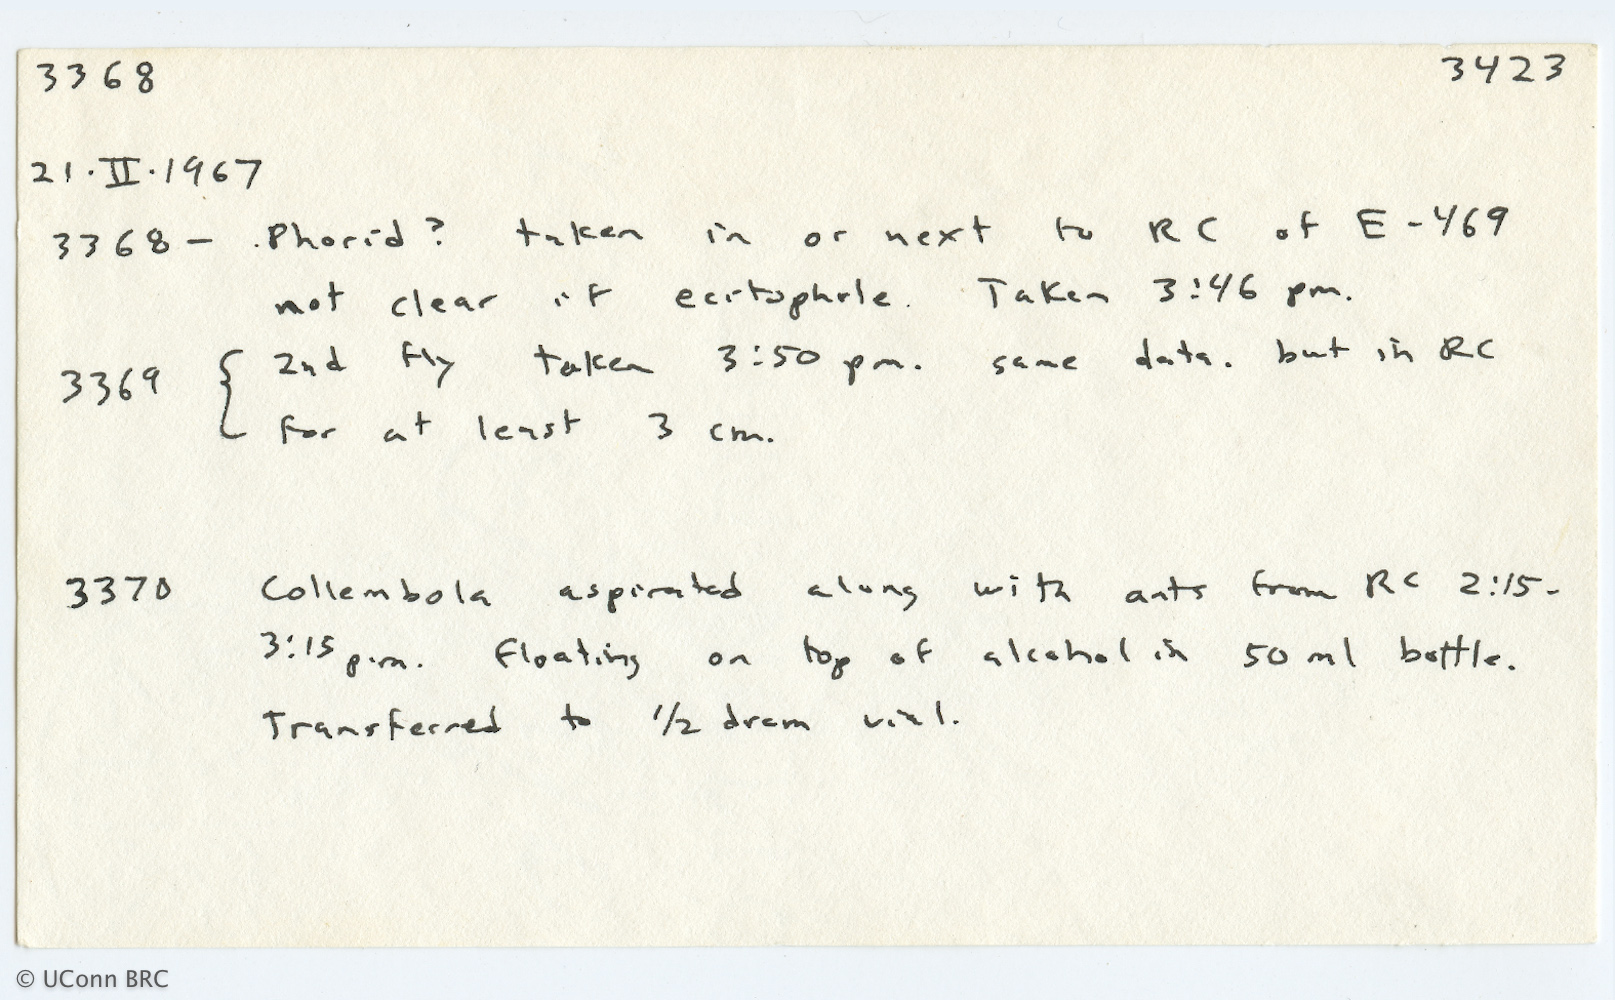 3368 3423
21·II·1967
3368 – Phorid? taken in or next to RC of E-469
not clear if ecitophile. Taken 3:46 pm.
3369 { 2nd fly taken 3:50 pm. same data. but in RC
for at least 3 cm.
3370 Collembola aspirated along with ants from RC 2:15-
3:15 p.m. Floating on top of alcohol in 50 ml bottle.
Transferred to 1/2 dram vial.
© UConn BRC